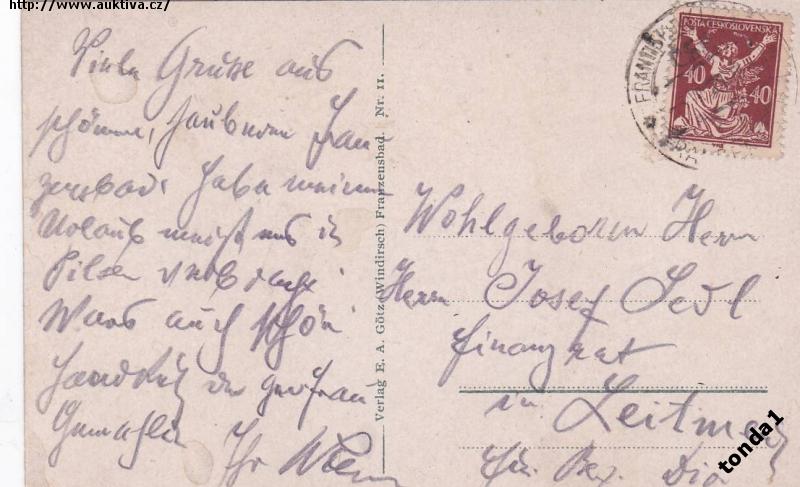 http://www.auktiva.cz/
Viele Grüße aus
schönen, saubern Fran
zensbad. Habe meinen
Urlaub meist nur in
Pilsen verbracht.
Wars auch schön.
Handkuß der
Gemahlin Ihr
Verlag E. A. Götz (Windirsch) Franzensbad. Nr. 11.
POŠTA ČESKOSLOVENSKÁ
40 40
Wohlgeboren Herrn
Herrn Josef Sedl
Finanzrat
in Leitmer
tonda1